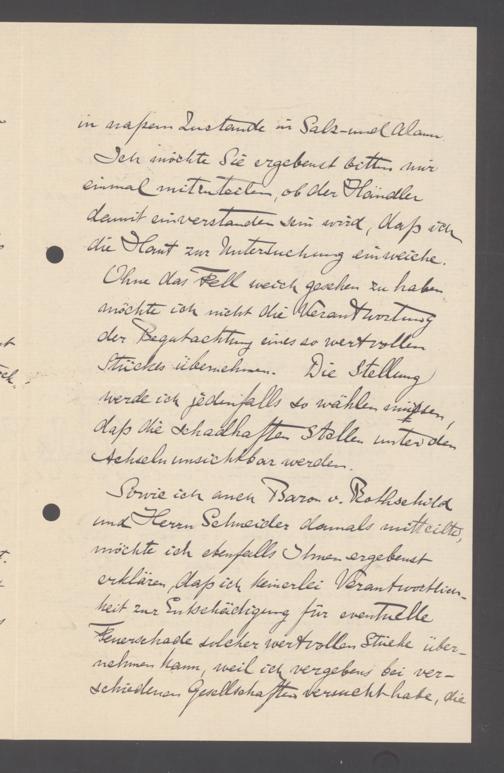 in naßem Zustande in Salz- und Alaun.
Ich möchte Sie ergebenst bitten mir
einmal mitzuteilen, ob der Händler
damit einverstanden sein wird, daß ich
die Haut zur Untersuchung einweiche.
Ohne das Fell weich gesehen zu haben
möchte ich nicht die Verantwortung
der Begutachtung eines so wertvollen
Stückes übernehmen. Die Stellung
werde ich jedenfalls so wählen müssen,
daß die schadhaften Stellen unter den
Achseln unsichtbar werden.
Sowie ich auch Baron v. Rothschild
und Herrn Schneider damals mitteilte,
möchte ich ebenfalls Ihnen ergebenst
erklären, daß ich keinerlei Verantwortlich-
keit zur Entschädigung für eventuelle
Feuerschade solcher wertvollen Stücke über-
nehmen kann, weil ich vergebens bei ver-
schiedenen Gesellschaften versucht habe, die